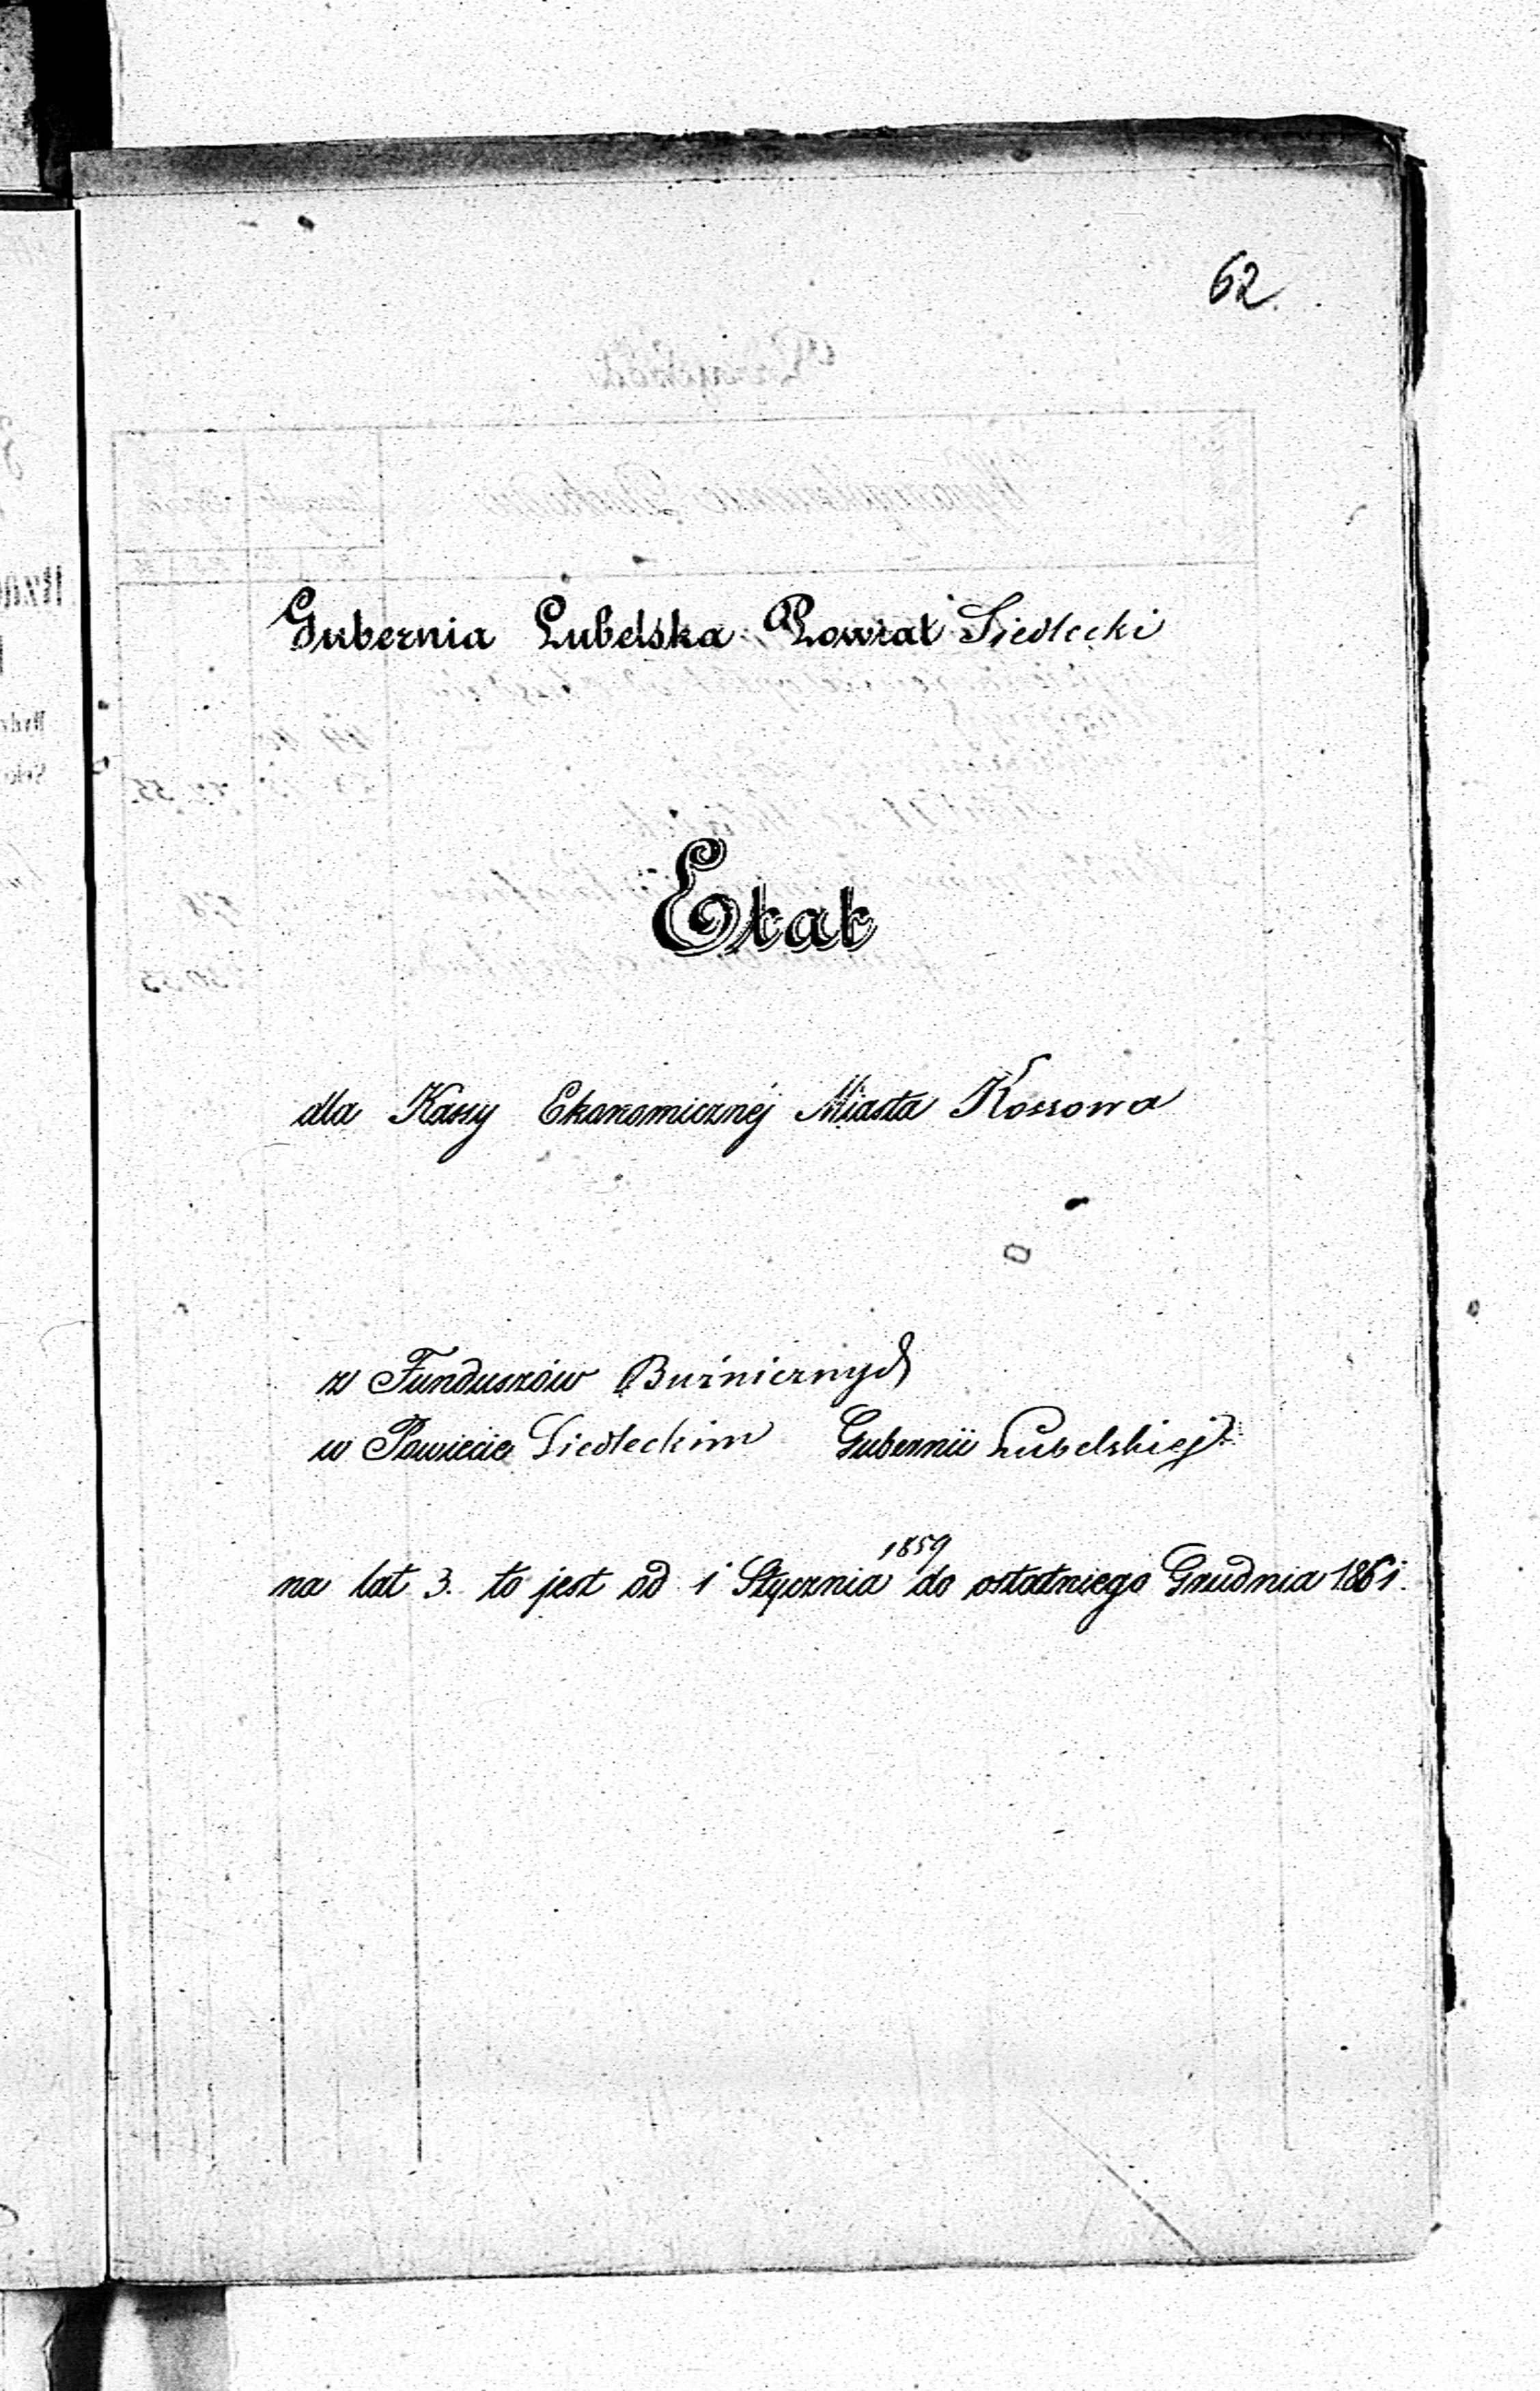 62.
Gubernia Lubelska Powiat Siedlecki
Etat
dla Kassy Ekonomicznéj Miasta Kossowa
z Funduszów Bużnicznych
w Powiecie Siedleckim Gubernii Lubelskiej
1859
na lat 3. to jest od 1 Stycznia do ostatniego Grudnia 1861.